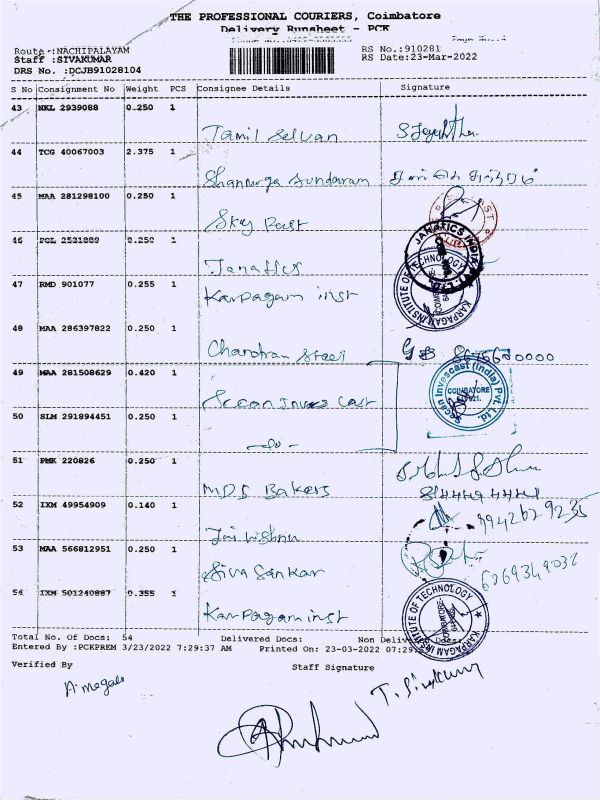 THE PROFESSIONAL COURIERS, Coimbatore
Delivery Runsheet - PCK
Route :NACHIPALAYAM RS No.:910281
Staff :SIVAKUMAR RS Date:23-Mar-2022
DRS No. :DCJB91028104
S No Consignment No Weight PCS Consignee Details Signature
43 NKL 2939088 0.250 1
Tamil Selvan
44 TCG 40067003 2.375 1
Shanmuga Sundaram
45 MAA 281298100 0.250 1
Sky Pest
46 PGL 2531889 0.250 1
Janatics
JANATICS INDIA
47 RMD 901077 0.255 1
Karpagam inst
KARPAGAM INSTITUTE OF TECHNOLOGY
48 MAA 286397822 0.250 1
Chandran Steel
49 MAA 281508629 0.420 1
Secan Invescast (India) Pvt. Ltd.
COIMBATORE
50 SLM 291894451 0.250 1
-do-
51 PMK 220826 0.250 1
MDS Bakers
52 IXM 49954909 0.140 1
Jai Krishna 9942629235
53 MAA 566812951 0.250 1
Siva Sankar 6369349032
54 IXM 501240887 0.355 1
Karpagam inst
KARPAGAM INSTITUTE OF TECHNOLOGY
COIMBATORE
Total No. Of Docs: 54 Delivered Docs: Non Delivered Docs:
Entered By :PCKPREM 3/23/2022 7:29:37 AM Printed On: 23-03-2022 07:29
Verified By Staff Signature